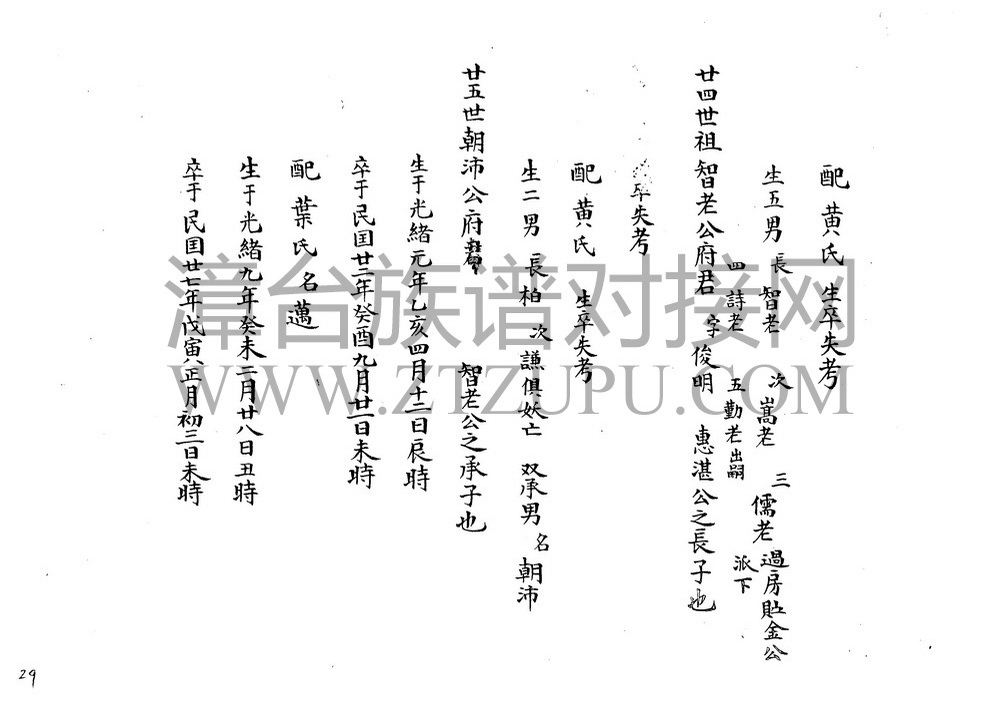 配黄氏 生卒失考
生五男 長智老 次嵩老 三儒老過房貯金公派下
四詩老 五勤老出嗣
廿四世祖智老公府君 字俊明 惠湛公之長子也
生卒失考
配黄氏 生卒失考
生二男 長柏 次謙俱妖亡 双承男名朝沛
廿五世朝沛公府君 智老公之承子也
生于光緒元年乙亥四月十二日辰時
卒于民国廿二年癸酉九月廿一日未時
配葉氏名邁
生于光緒九年癸未二月廿八日丑時
卒于民国廿七年戊寅正月初三日未時
29
漳台族谱对接网
WWW.ZTZUPU.COM